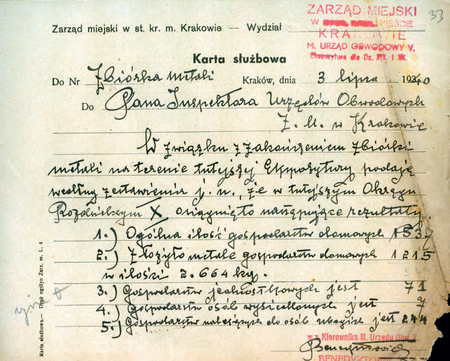 33
ZARZĄD MIEJSKI
W KRAKOWIE
M. URZĄD OBWODOWY V.
Ekspozytura dla Dz. XI. i XII.
Zarząd miejski w st. kr. m. Krakowie — Wydział
Karta służbowa
Do Nr Zbiórka metali Kraków, dnia 3 lipca 1940
Do Pana Inspektora Urzędów Obwodowych
Z. M. w Krakowie
W związku z zakończeniem zbiórki
metali na terenie tutejszej Ekspozytury podaję
według zestawienia j. n., że w tutejszym Okręgu
Rozdzielczym X, osiągnięto następujące rezultaty
1.) Ogólna ilość gospodarstw domowych
2.) Złożyło metale gospodarstw domowych 1215
w ilości 2.664 kg.
3.) Gospodarstw jednoosobowych jest 71
4.) Gospodarstw osób wysiedlonych jest 7
5.) Gospodarstw należących do osób ubogich jest 244
Kierownika M. Urzędu Obw. V
BENEDYK
Karta służbowa. — Druk ogólny Zarz. m. L. 4